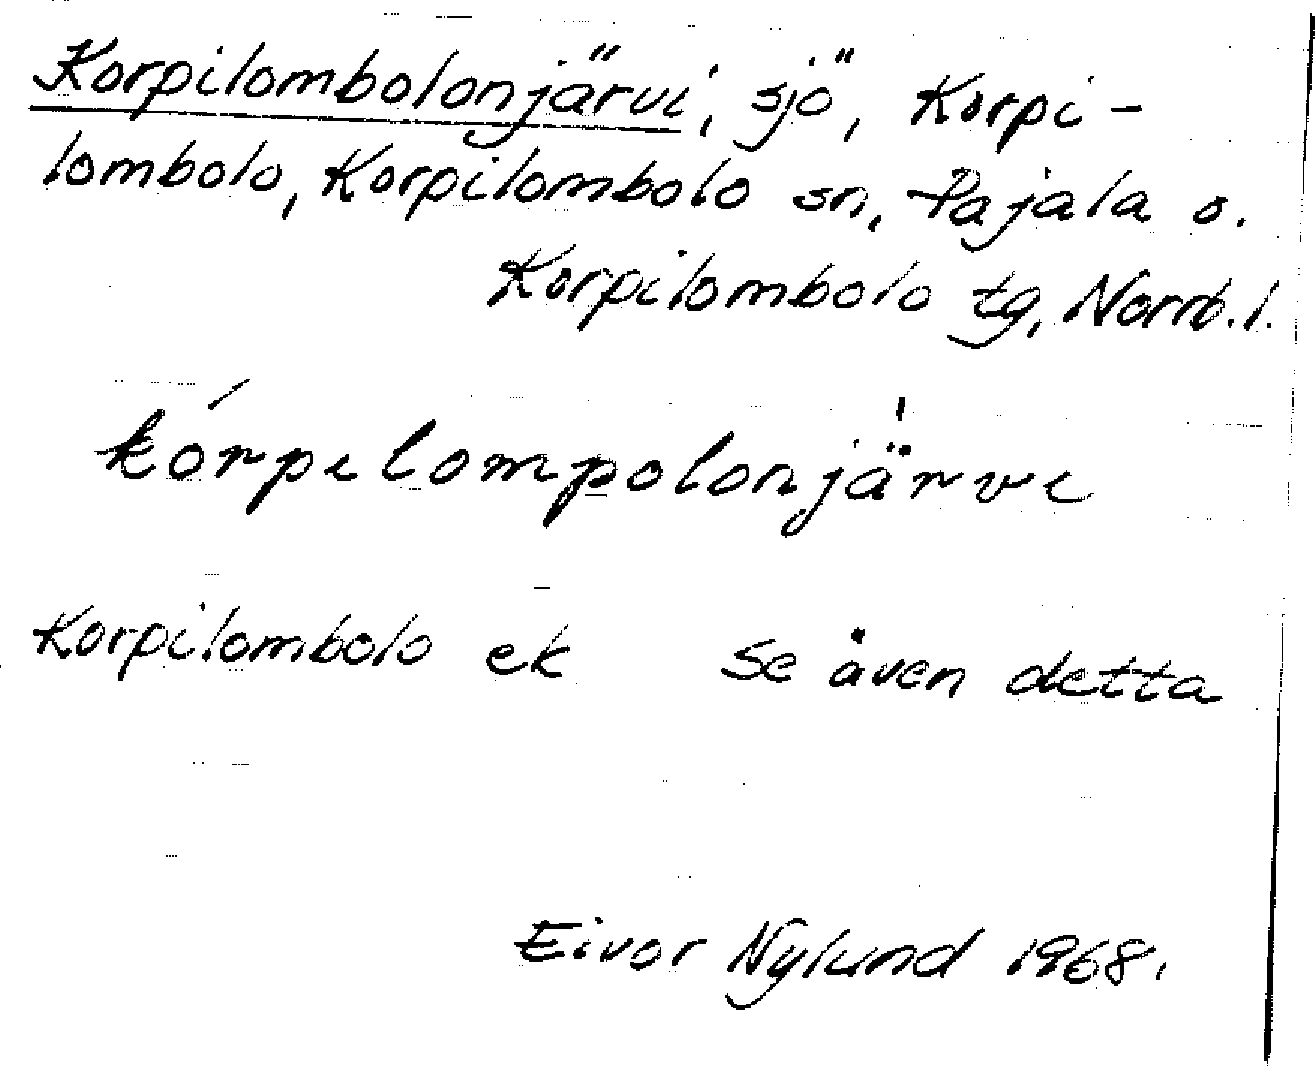 Korpilombolonjärvi, sjö, Korpi-
lombolo, Korpilombolo sn, Pajala o.
Korpilombolo tg, Norrb. l.
kórpilompolonjä̍rvi
Korpilombolo ek se även detta
Eivor Nylund 1968.